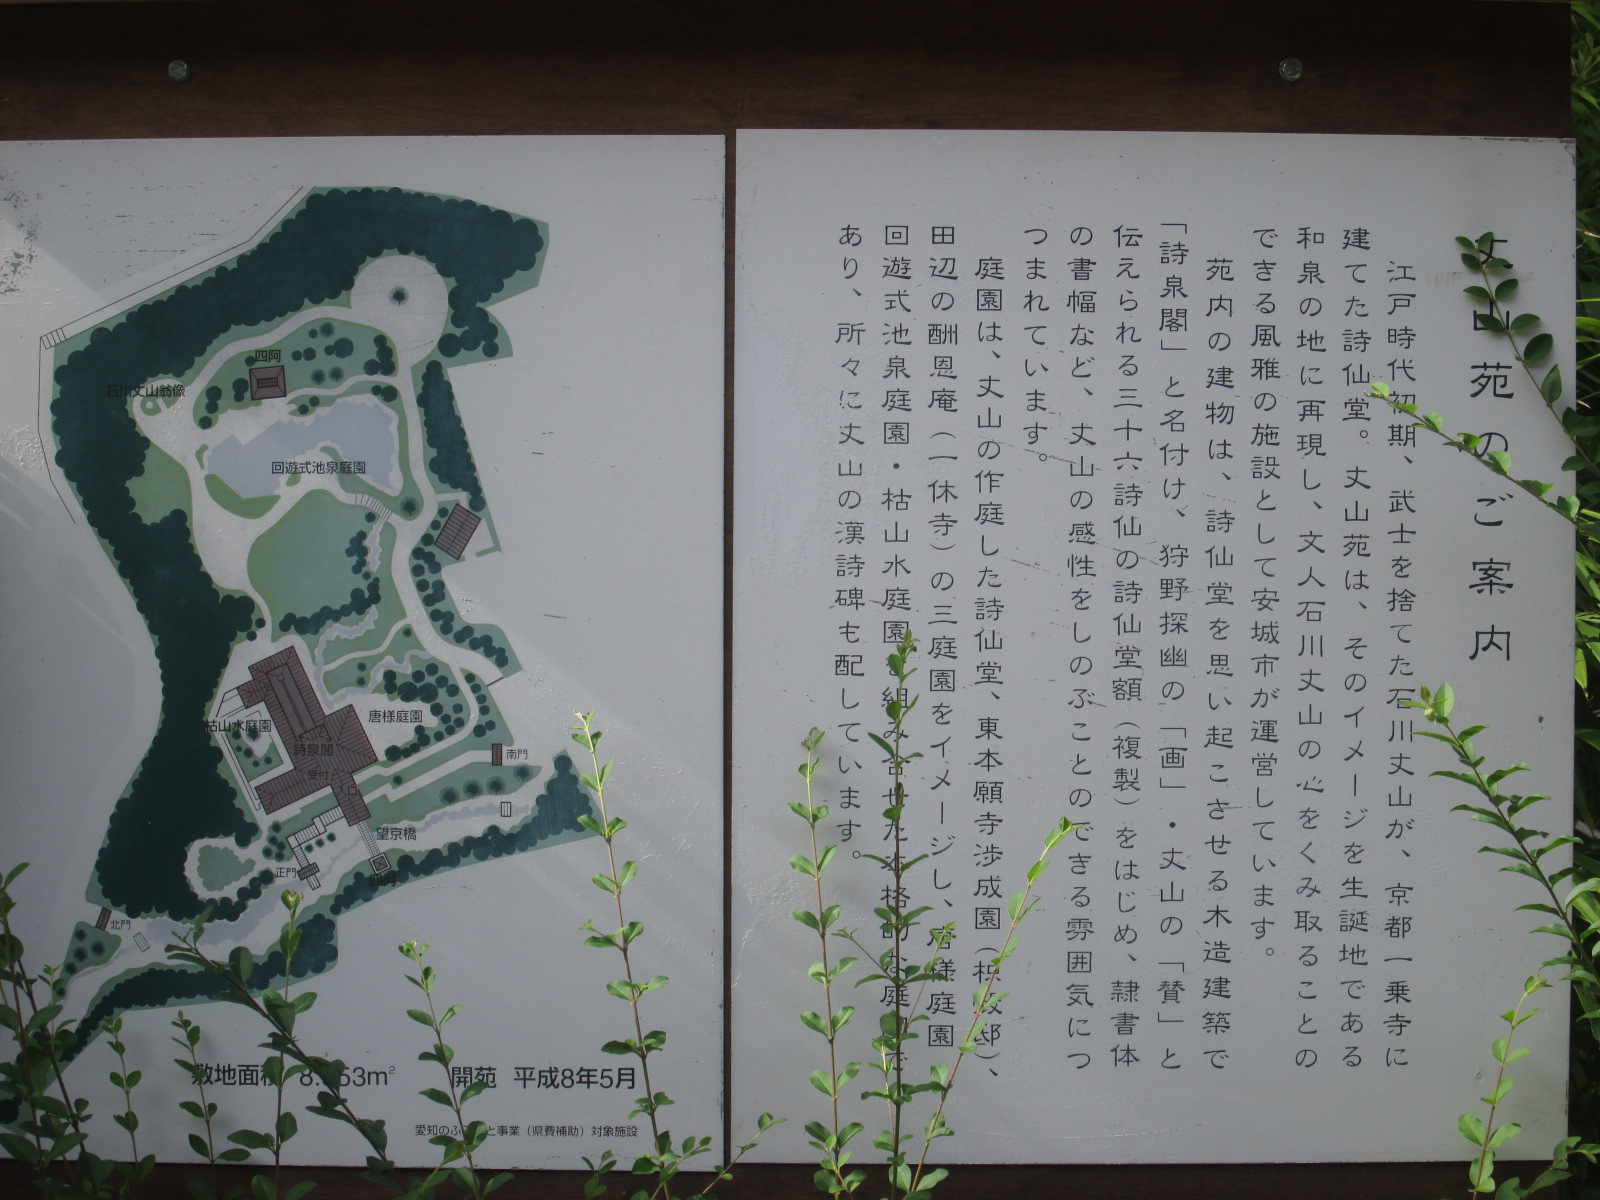 丈山苑のご案内
江戸時代初期、武士を捨てた石川丈山が、京都一乗寺に
建てた詩仙堂。丈山苑は、そのイメージを生誕地である
和泉の地に再現し、文人石川丈山の心をくみ取ることの
できる風雅の施設として安城市が運営しています。
苑内の建物は、詩仙堂を思い起こさせる木造建築で
「詩泉閣」と名付け、狩野探幽の「画」・丈山の「賛」と
伝えられる三十六詩仙の詩仙堂額（複製）をはじめ、隷書体
の書幅など、丈山の感性をしのぶことのできる雰囲気につ
つまれています。
庭園は、丈山の作庭した詩仙堂、東本願寺渉成園（枳殻邸）、
田辺の酬恩庵（一休寺）の三庭園をイメージし、唐様庭園
回遊式池泉庭園・枯山水庭園を組み合せた本格的な庭園で
あり、所々に丈山の漢詩碑も配しています。
四阿
石川丈山翁像
回遊式池泉庭園
枯山水庭園
唐様庭園
詩泉閣
受付
入口
南門
望京橋
正門
四阿
北門
敷地面積
開苑 平成8年5月
愛知の
と事業（県費補助）対象施設